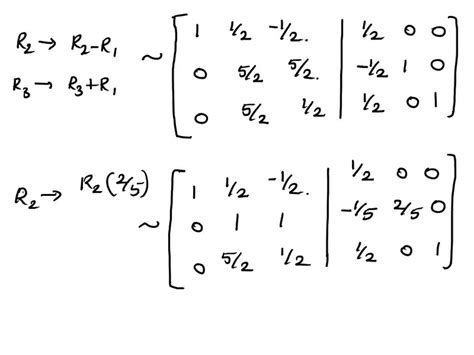 R₂ → R₂-R₁ ~ [ 1 1/2 -1/2. | 1/2 0 0
R₃ → R₃+R₁ 0 5/2 5/2. | -1/2 1 0
0 5/2 1/2 | 1/2 0 1 ]
R₂ → R₂(2/5) ~ [ 1 1/2 -1/2. | 1/2 0 0
0 1 1 | -1/5 2/5 0
0 5/2 1/2 | 1/2 0 1 ]